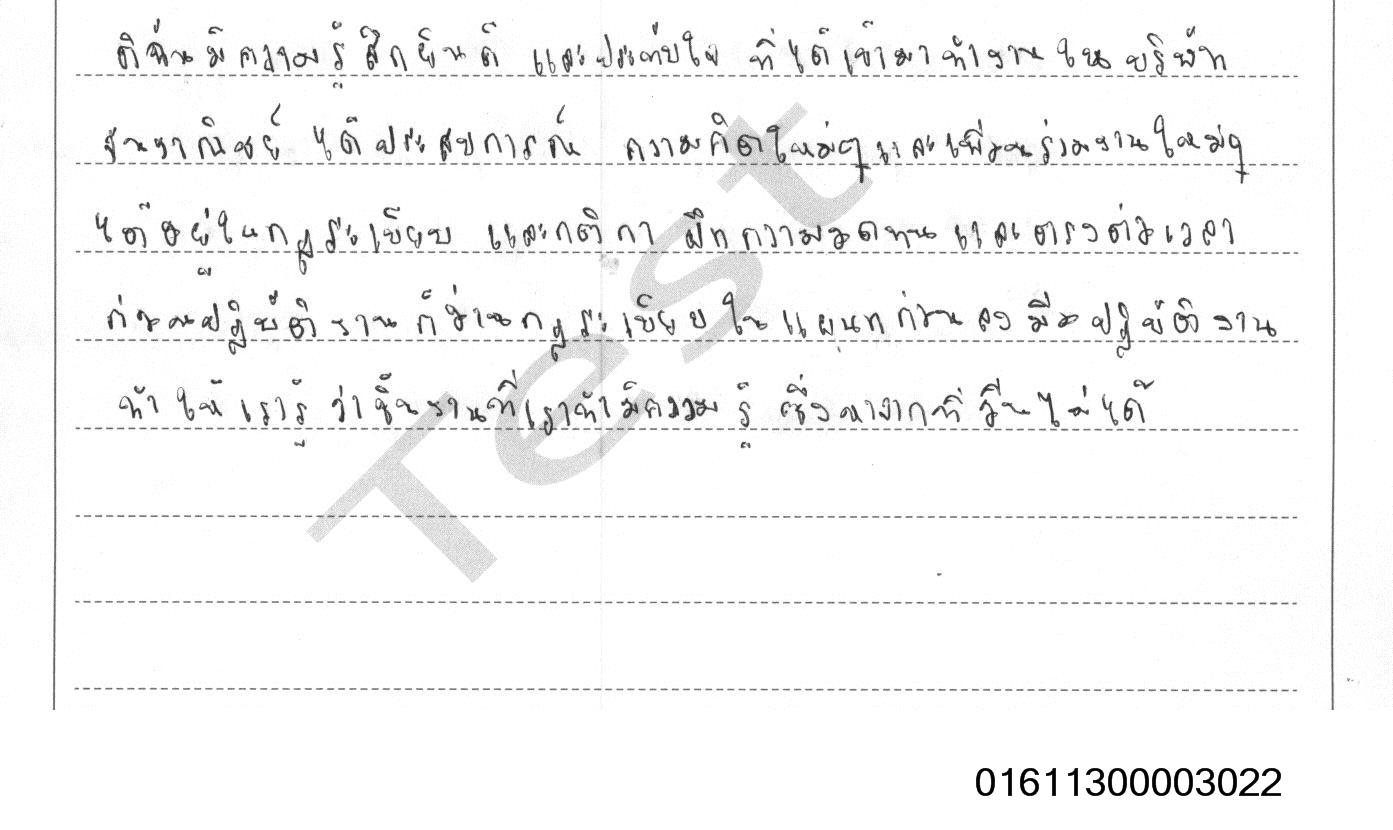 ดิฉันมีความรู้สึกยินดี และประทับใจ ที่ได้เข้ามาทำงานในบริษัท
ธนพาณิชย์ ได้ประสบการณ์ ความคิดใหม่ๆและเพื่อนร่วมงานใหม่ๆ
ได้อยู่ในกฎระเบียบ และกติกา ฝึกความอดทนและตรงต่อเวลา
ก่อนปฏิบัติงานก็อ่านกฎระเบียบในแผนกก่อนลงมือปฏิบัติงาน
ทำให้เรารู้ว่าชิ้นงานที่เราทำมีความรู้ ซึ่งหาจากที่อื่นไม่ได้
Test
01611300003022